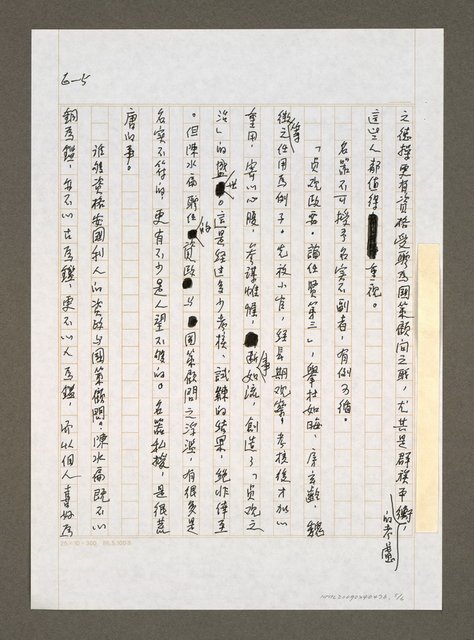 6-5
之德操更有資格受聘為國策顧問之職，尤其是群族平衡的考慮，
這些人都值得重視。
名器不可授予名實不副者，有例可循。
「貞觀政要。論任賢第三」，舉杜如晦、房玄齡、魏
徵等之任用為例子。先被小官，經長期觀察、考核後才加以
重用，寄以心腹，參謀帷幄，斷事如流，創造了「貞觀之
治」的盛世。這是經過多少考核、試鍊的結果，絕非倖至
。但陳水扁聘任的資政與國策顧問之浮濫，有很多是
名實不符的，更有不少是人望不孚的。名器私授，是很荒
唐的事。
誰是資格安國利人的資政與國策顧問？陳水扁既不以
銅為鑑，無不以古為鑑，更不以人為鑑，而以個人喜好為
25×10=300. 86.5.100本
NMTL20090240476, 5/6